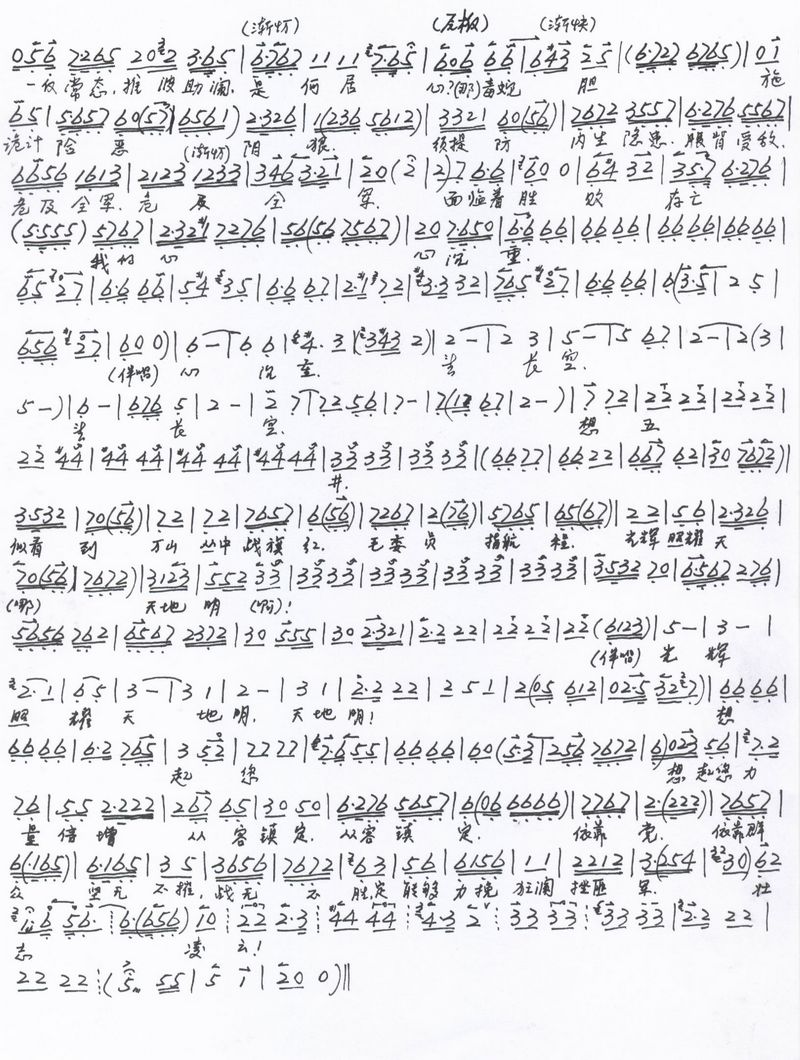 (渐忙) (尼板) (渐快)
056 7265 2022 3·65 | 6·767 11 11 7·65 | 606 66 | 643 25 | (6·722 6765) | 01
一反常态,推波助澜,是 何居 心?(那)毒蛇 胆 施
65 | 5657 60(57) | 6561) 2326 | 1(236 5612) | 3321 60(56) | 7672 3557 | 6·276 5567 |
诡计 险恶 (渐忙) 阴 狠. 须提防 内生隐患.腹背受敌.
6656 1613 | 2123 1233 | 346 3·21 | 20 (2 | 2) 7 6·6 | 60 0 | 64 32 | 357 6·276 |
危及全军.危及全 军. 面临着胜 败 存亡
(5555) 5767 | 2·321 7276 | 56(56 7567) | 20 7·650 | 6·6 66 | 66 66 | 66 66 | 66 66 |
我的心 心沉重.
65 27 | 6·6 66 | 54 35 | 6·6 67 | 2·1 72 | 3·3 32 | 765 27 | 6·6 66 | 6(3·5 | 2 5 |
656 27 | 600) | 6 - | 6 6 | 4· 3 | (343 2) | 2 - | 2 3 | 5 - | 5 67 | 2 - | 2 (3 |
(伴唱) 心 沉重. 长空.
5 -) | 6 - | 676 5 | 2 - | 2 7 | 72 56 | 7 - | 7(12 67 | 2 -) | 7 72 | 22 22 | 22 22 |
长 空. 想 五
22 44 | 44 44 | 44 44 | 44 44 | 33 33 | 33 33 | (66 77 | 66 22 | 667 62 | 30 7672) |
井.
3532 | 70(56) | 72 | 72 | 7657 | 6(56) | 7267 | 2(76) | 5765 | 65(67) | 22 | 56 | 2·326 |
似看 到 万山丛中战旗红. 毛委员 指航程. 光辉照耀天
70(56) | 7672) | 3123 | 552 33 | 33 33 | 33 33 | 33 33 | 33 33 | 3532 70 | 6567 276 |
(哪) 天地明 (啊)!
5656 762 | 6567 2372 | 30 555 | 30 2·321 | 2·2 22 | 22 22 | 22 (6123) | 5 - | 3 - |
(伴唱) 光 辉
2· 1 | 65 | 3 - | 3 1 | 2 - | 3 1 | 2·2 22 | 2 5 1 | 2(05 612 | 02·5 327) | 66 66 |
照 耀 天 地明. 天地明! 想
66 66 | 6·2 765 | 3 52 | 77 77 | 7·6 55 | 66 66 | 60 (53 | 256 7672 | 6) 023 56 | 7·2
起 您 想起您力
76 | 55 2·222 | 267 65 | 30 50 | 6·276 5657 | 6(06 6666) | 7767 | 2·(222) | 7657 |
量倍增 从容镇定. 从容镇定. 依靠党. 依靠群
6(·165) | 6·165 | 3 5 | 3656 | 7672 | 63 | 56 | 6156 | 11 | 2212 | 3·(254 | 30) 62
众 坚无不摧,战无不胜,定能够力挽狂澜挫匪军. 壮
6 56· 6·(656) 10 22 2·3 44 44 4·3 2 33 33 33 33 | 2·2 22 |
志 凌云!
22 22 (5 55 | 5 1 | 20 0) ‖